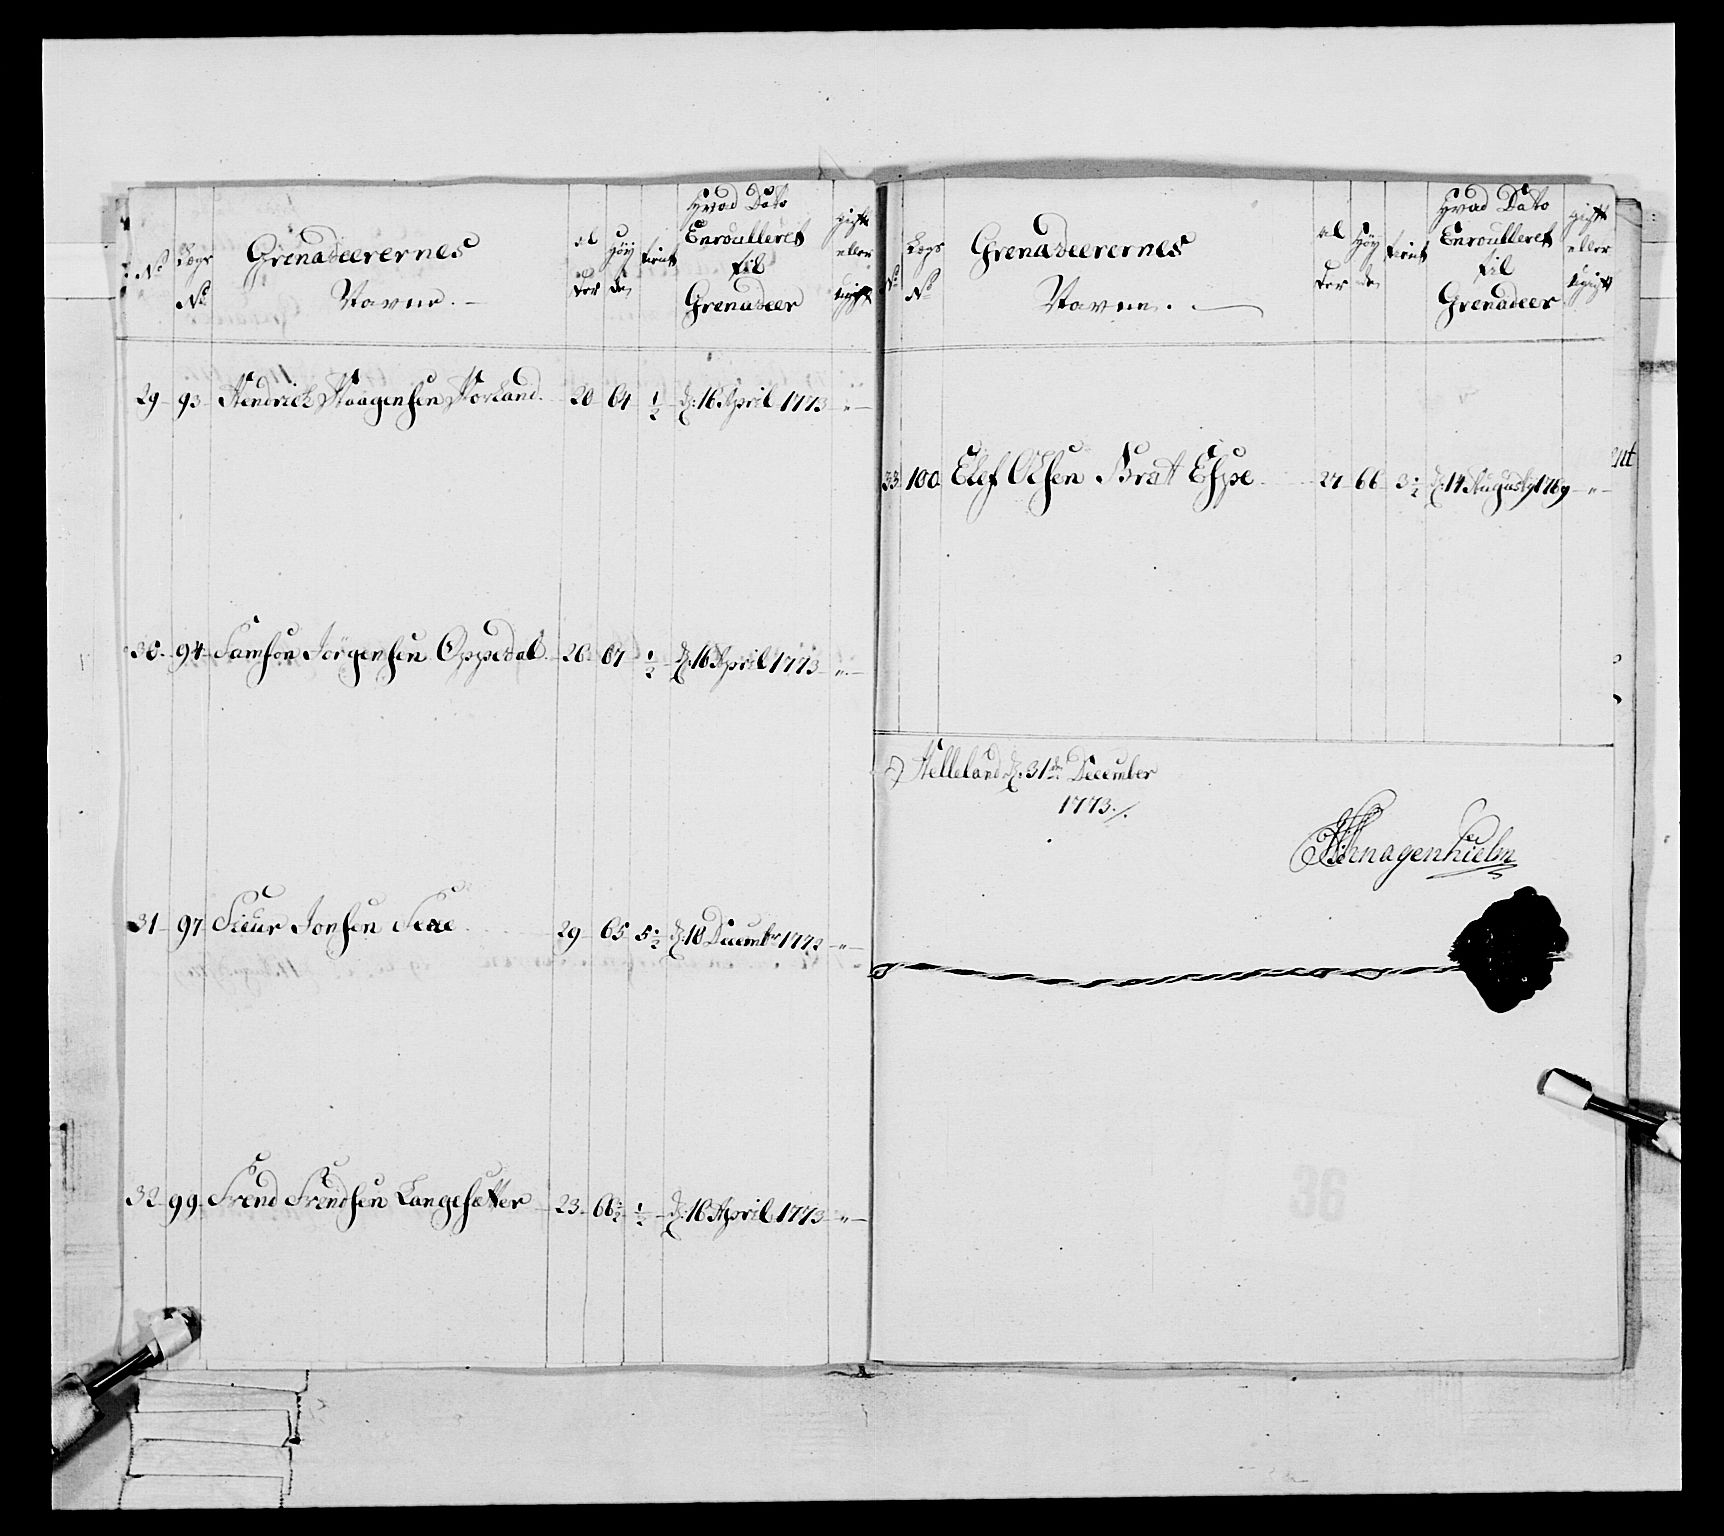 No
Lægs
No
Grenadeerernes
Navne. —
al
der
Høy
de
tient
Hvad Dato
Enroulleret
til
Grenadeer
gift
eller
ugift
29 93 Hendrich Haagensen Norland. 20 64 1/2 d: 16 April 1773 „
30. 94 Samson Jörgensen Oppedal. 20 67 1/2 d: 16 April 1773 „
31 97 Siur Jonsen Sexe 29 65 5 1/2 d: 10 Decembr 1772 „
32 99 Trond Trondsen Langesætter 23 66 1/2 1/2 d: 16 April 1773 „
No
Lægs
No
Grenadeerernes
Navne. —
al
der
Høy
de
tient
Hvad Dato
Enroulleret
til
Grenadeer
gift
eller
ugift
33 100 Elef Olsen Brat Espe 27 66 3 1/2 d: 14 Augusty 1769 „
Helleland d: 31 de December
1773./.
Hirnagenhielm
nt
36